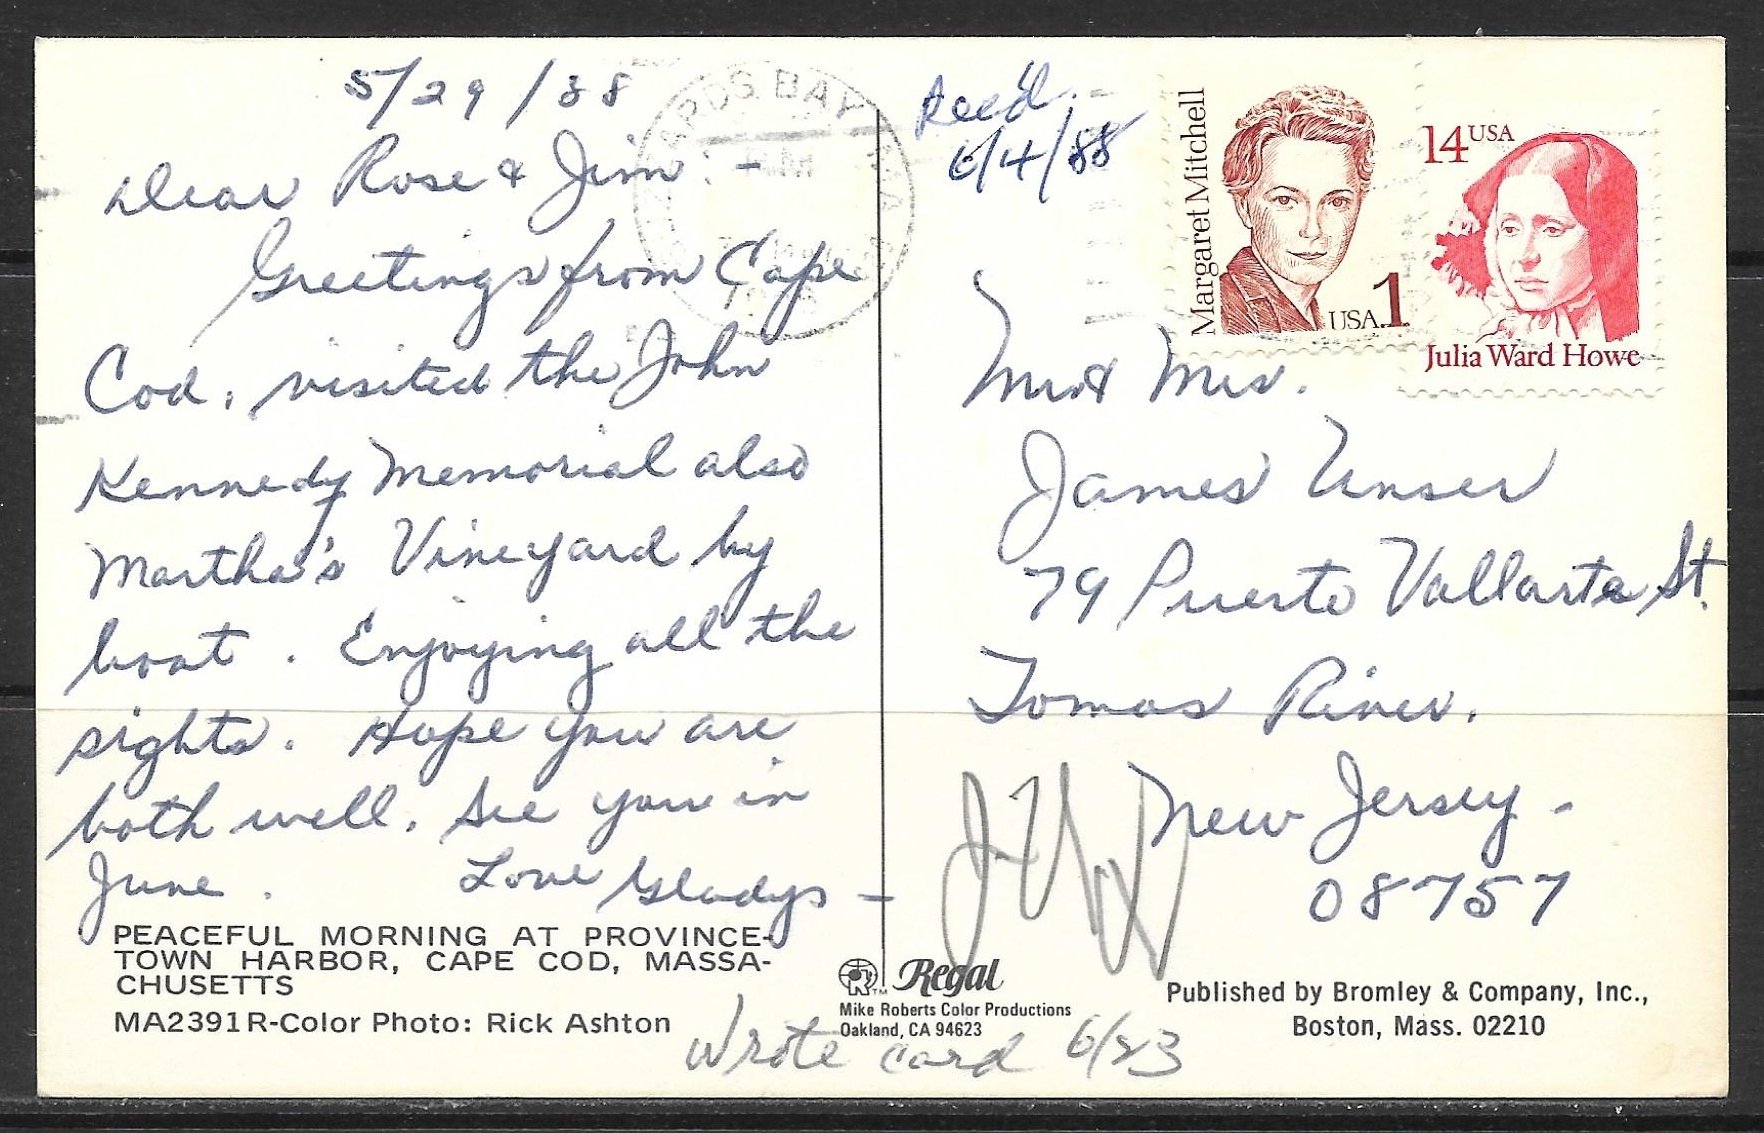 5/29/88
Dear Rose & Jim -
Greetings from Cape
Cod, visited the John
Kennedy Memorial also
Martha's Vineyard by
boat. Enjoying all the
sights. Hope you are
both well. See you in
June. Love Gladys -
PEACEFUL MORNING AT PROVINCE-
TOWN HARBOR, CAPE COD, MASSA-
CHUSETTS
MA2391R-Color Photo: Rick Ashton
ARDS BAY MA
Rec'd.
6/4/88
Margaret Mitchell
USA 1
14 USA
Julia Ward Howe
Mr & Mrs.
James Unser
79 Puerto Vallarta St.
Tomas River.
New Jersey -
08757
Regal
Mike Roberts Color Productions
Oakland, CA 94623
Published by Bromley & Company, Inc.,
Boston, Mass. 02210
Wrote card 6/23